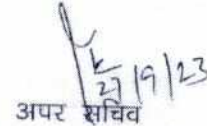 27/9/23
अपर सचिव